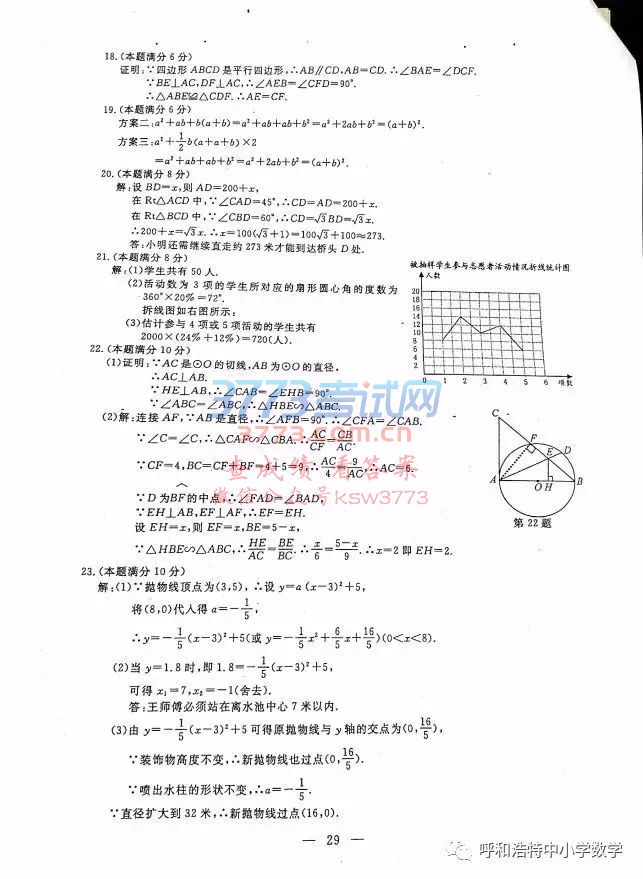 18.(本题满分 6 分)
证明:∵四边形 ABCD 是平行四边形,∴AB∥CD,AB=CD.∴∠BAE=∠DCF.
∵BE⊥AC,DF⊥AC,∴∠AEB=∠CFD=90°.
∴△ABE≌△CDF.∴AE=CF.
19.(本题满分 6 分)
方案二:a²+ab+b(a+b)=a²+ab+ab+b²=a²+2ab+b²=(a+b)².
方案三:a²+1/2b(a+a+b)×2
=a²+ab+ab+b²=a²+2ab+b²=(a+b)².
20.(本题满分 8 分)
解:设 BD=x,则 AD=200+x,
在 Rt△ACD 中,∵∠CAD=45°,∴CD=AD=200+x.
在 Rt△BCD 中,∵∠CBD=60°,∴CD=√3BD=√3x.
∴200+x=√3x.∴x=100(√3+1)=100√3+100≈273.
答:小明还需继续直走约 273 米才能到达桥头 D 处.
21.(本题满分 8 分)
解:(1)学生共有 50 人.
(2)活动数为 3 项的学生所对应的扇形圆心角的度数为
360°×20%=72°.
拆线图如右图所示:
(3)估计参与 4 项或 5 项活动的学生共有
2000×(24%+12%)=720(人).
被抽样学生参与志愿者活动情况折线统计图
人数
20
18
16
14
12
10
8
6
4
2
0 1 2 3 4 5 6 项数
22.(本题满分 10 分)
(1)证明:∵AC 是⊙O 的切线,AB 为⊙O 的直径,
∴AC⊥AB.
∵HE⊥AB,∴∠CAB=∠EHB=90°.
∵∠ABC=∠ABC,∴△HBE∽△ABC.
(2)解:连接 AF,∵AB 是直径,∴∠AFB=90°.∴∠CFA=∠CAB.
∵∠C=∠C,∴△CAF∽△CBA.∴AC/CF=CB/AC.
∵CF=4,BC=CF+BF=4+5=9,∴AC/4=9/AC,∴AC=6.
∵D 为BF的中点,∴∠FAD=∠BAD,
∵EH⊥AB,EF⊥AF,∴EF=EH.
设 EH=x,则 EF=x,BE=5-x,
∵△HBE∽△ABC,∴HE/AC=BE/BC.∴x/6=5-x/9.∴x=2 即 EH=2.
C
F
E
D
A
O
H
B
第 22 题
23.(本题满分 10 分)
解:(1)∵抛物线顶点为(3,5),∴设 y=a(x-3)²+5,
将(8,0)代人得 a=-1/5,
∴y=-1/5(x-3)²+5(或 y=-1/5x²+6/5x+16/5)(0<x<8).
(2)当 y=1.8 时,即 1.8=-1/5(x-3)²+5,
可得 x₁=7,x₂=-1(舍去).
答:王师傅必须站在离水池中心 7 米以内.
(3)由 y=-1/5(x-3)²+5 可得原抛物线与 y 轴的交点为(0,16/5),
∵装饰物高度不变,∴新抛物线也过点(0,16/5).
∵喷出水柱的形状不变,∴a=-1/5.
∵直径扩大到 32 米,∴新抛物线过点(16,0).
— 29 —
3773考试网
3773.com.cn
查成绩看答案
微信公众号 ksw3773
呼和浩特中小学数学